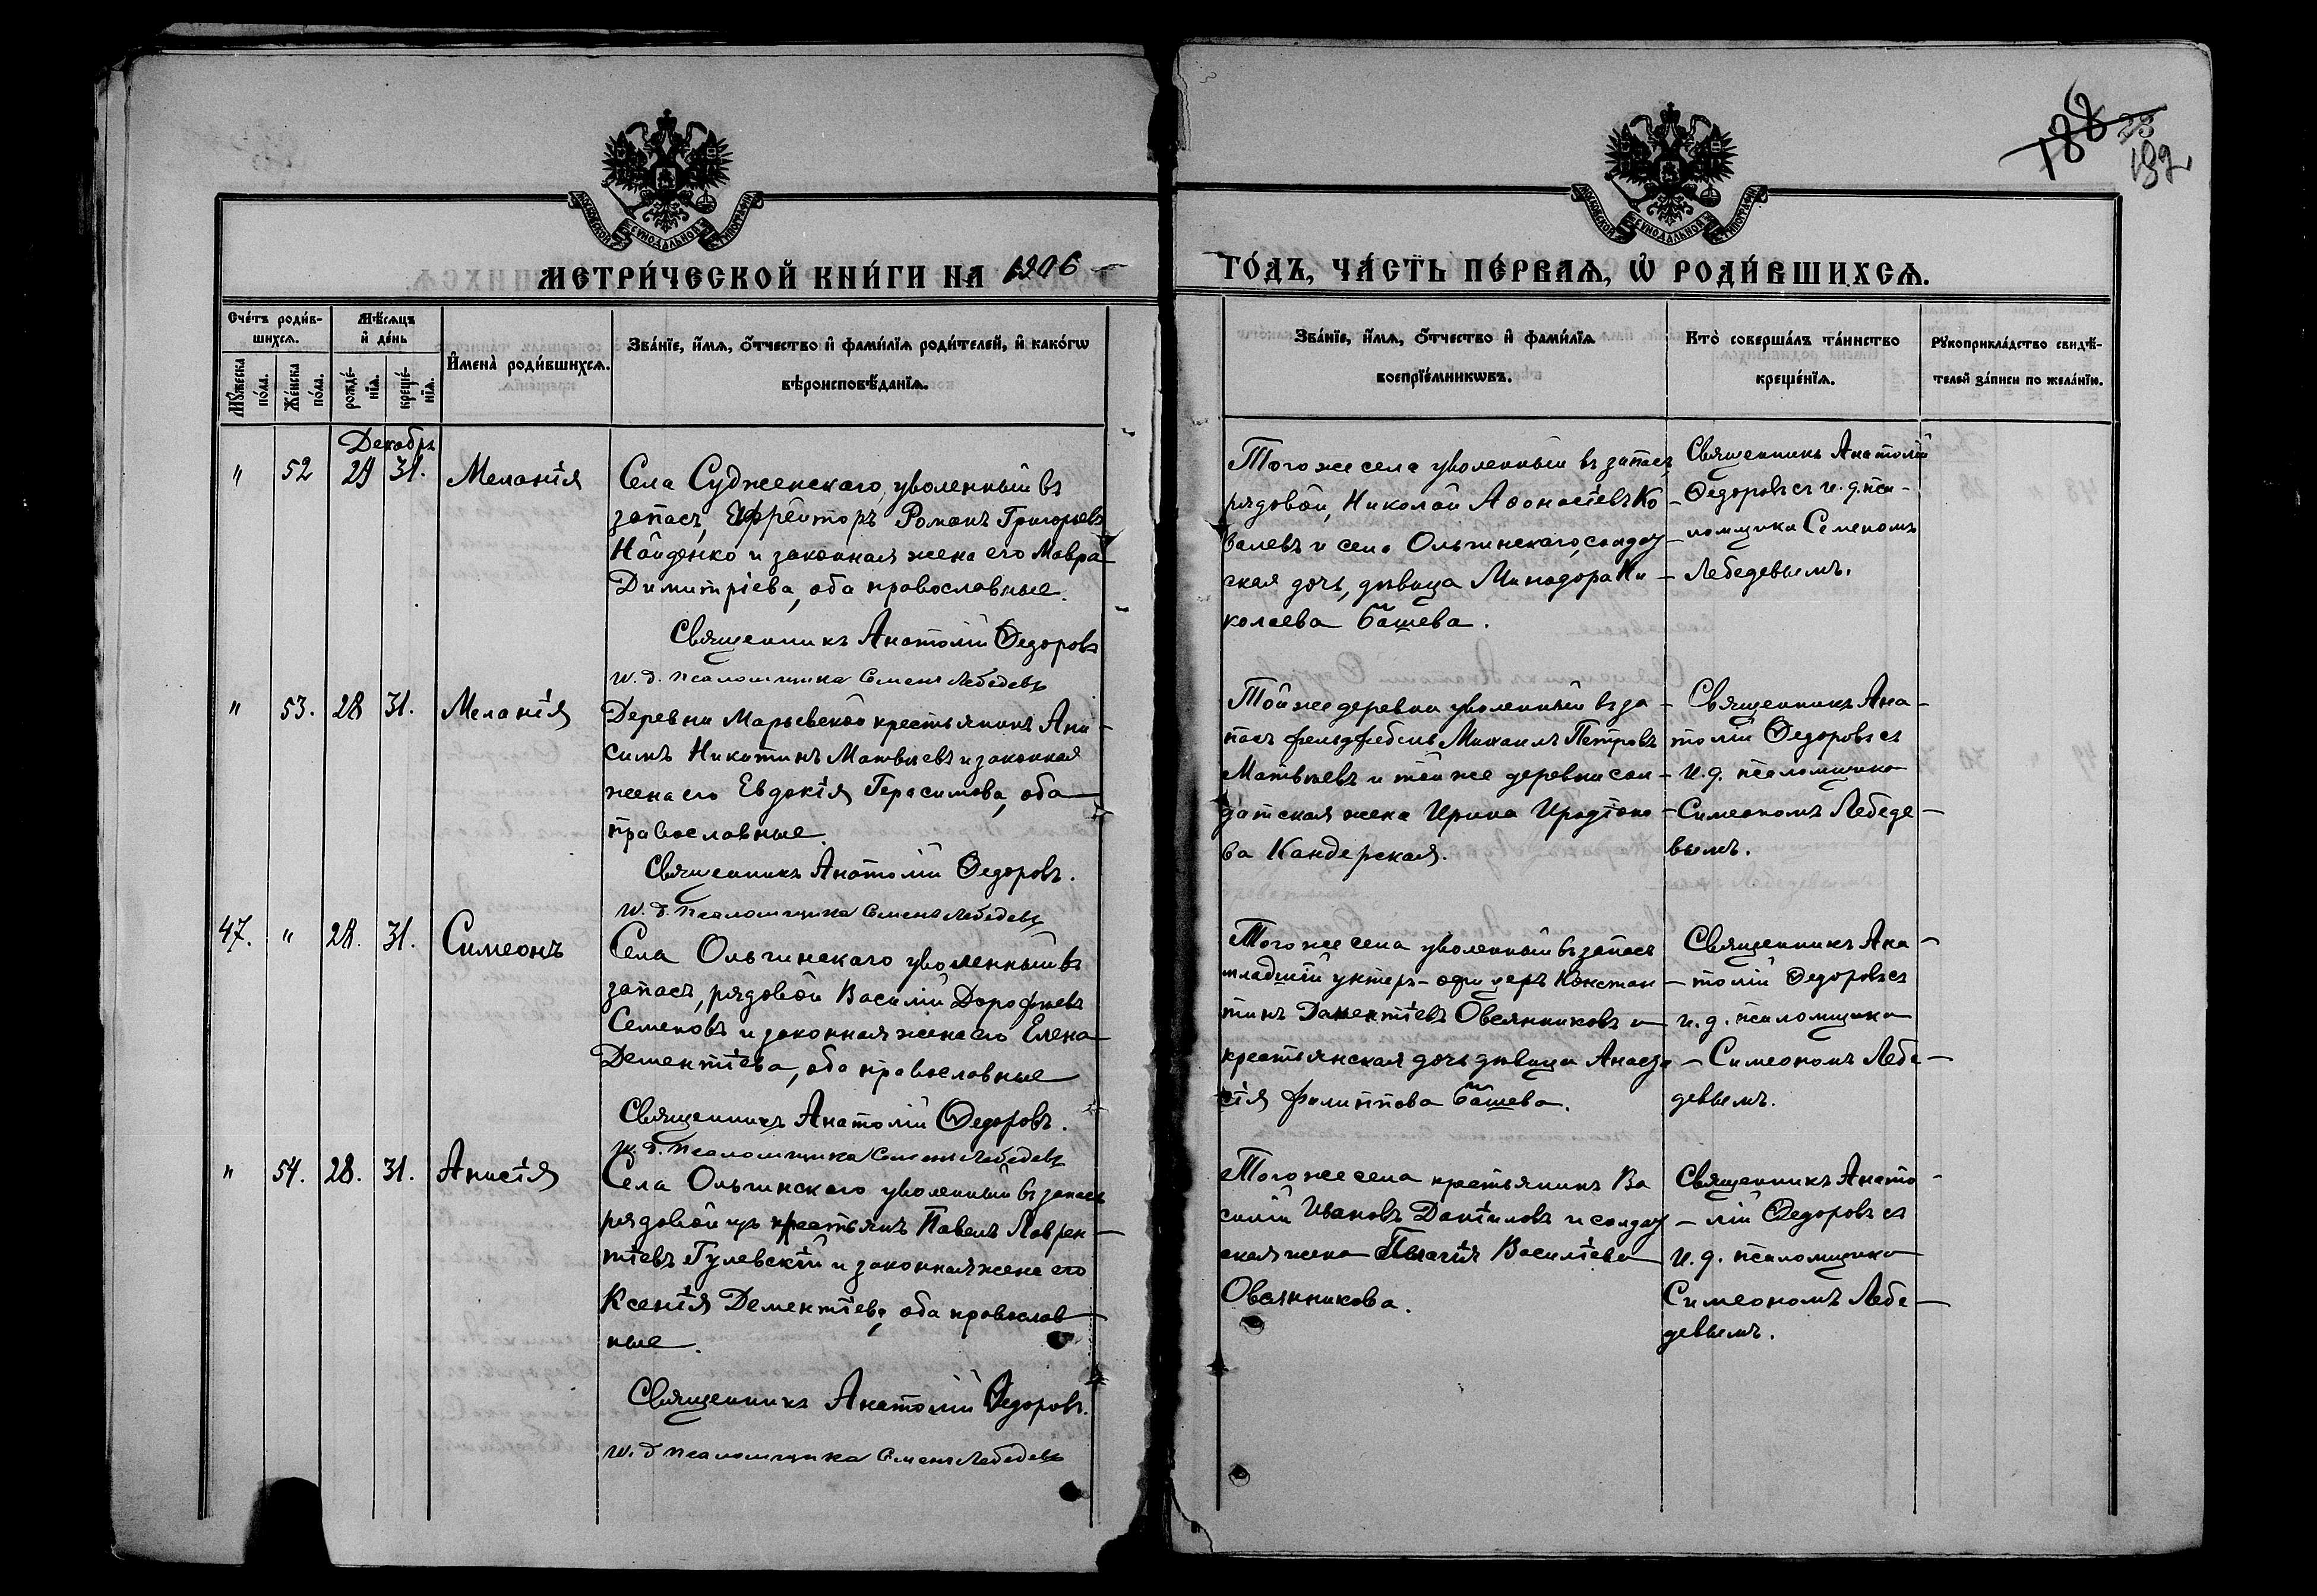 188 23
192
МОСКОВСКОЙ СѴНОДАЛЬНОЙ ТИПОГРАФІИ
МОСКОВСКОЙ СѴНОДАЛЬНОЙ ТИПОГРАФІИ
МЕТРИ́ЧЕСКОЙ КНИ́ГИ НА 1906
ГО́ДЪ, ЧА́СТЬ ПЕ́РВАѦ, Ѡ҆ РОДИ́ВШИХСѦ.
Сче́тъ роди́в-
шихсѧ.
Мꙋ́жеска
по́ла.
Же́нска
по́ла.
Мѣ́сѧцъ
и҆ де́нь
рожде́-
нїѧ.
креще́-
нїѧ.
И҆мена̀ роди́вшихсѧ.
Зва́нїе, и҆́мѧ, ѻ҆́тчество и҆ фами́лїѧ роди́телей, и҆ како́гѡ
вѣроисповѣ́данїѧ.
Зва́нїе, и҆́мѧ, ѻ҆́тчество и҆ фами́лїѧ
воспрїе́мникѡвъ.
Кто̀ соверша́лъ та́инство
креще́нїѧ.
Рꙋкоприкла́дство свидѣ́-
телей за́писи по жела́нїю.
Декабрь
" 52 29 31. Меланія
Села Судженскаго, уволенный въ
запасъ, Ефрейторъ Романъ Григорьевъ
Найденко и законная жена его Мавра
Димитріева, оба православные.
Священникъ Анатолій Ѳедоровъ
И. д. псаломщика Семенъ Лебедевъ
Того же села уволенный въ запасъ
рядовой, Николай Аѳонасіевъ Ко
валевъ и села Ольгинскаго, солдат
ская дочь, дѣвица Минодора Ни
колаева Башева.
Священникъ Анатолій
Ѳедоровъ съ и. д. пса-
ломщика Семеномъ
Лебедевымъ.
" 53. 28 31. Меланія
Деревни Марьевской крестьянинъ Ани-
симъ Никитинъ Матвѣевъ и законная
жена его Евдокія Герасимова, оба
православные.
Священникъ Анатолій Ѳедоровъ.
И. д. псаломщика Семенъ Лебедевъ
Той же деревни уволенный въ за-
пасъ фельдфебель Михаилъ Петровъ
Матвѣевъ и той же деревни сол-
датская жена Ирина Иродіоно-
ва Кандерская.
Священникъ Ана-
толій Ѳедоровъ съ
и. д. псаломщика
Симеономъ Лебеде-
вымъ.
47. " 28. 31. Симеонъ
Села Ольгинскаго уволенный въ
запасъ, рядовой Василій Дорофѣевъ
Семеновъ и законная жена его Елена
Дементіева, оба православные
Священникъ Анатолій Ѳедоровъ.
И. д. псаломщика Семенъ Лебедевъ
Того же села уволенный въ запасъ
младшій унтеръ-офицеръ Констан
тинъ Дементіевъ Овсянниковъ и
крестьянская дочь дѣвица Анаста
сія Филиппова Башева.
Священникъ Ана-
толій Ѳедоровъ съ
и. д. псаломщика
Симеономъ Лебе-
девымъ.
" 54. 28. 31. Анисія
Села Ольгинскаго уволенный въ запасъ
рядовой изъ крестьянъ Павелъ Лаврен-
тіевъ Гулевскій и законная жена его
Ксенія Дементіева, оба православ-
ные.
Священникъ Анатолій Ѳедоровъ.
И. д псаломщика Семенъ Лебедевъ
Того же села крестьянинъ Ва
силій Ивановъ Даніиловъ и солдат
ская жена Пелагія Василіева
Овсянникова.
Священникъ Анато-
лій Ѳедоровъ съ
и. д. псаломщика
Симеономъ Лебе-
девымъ.